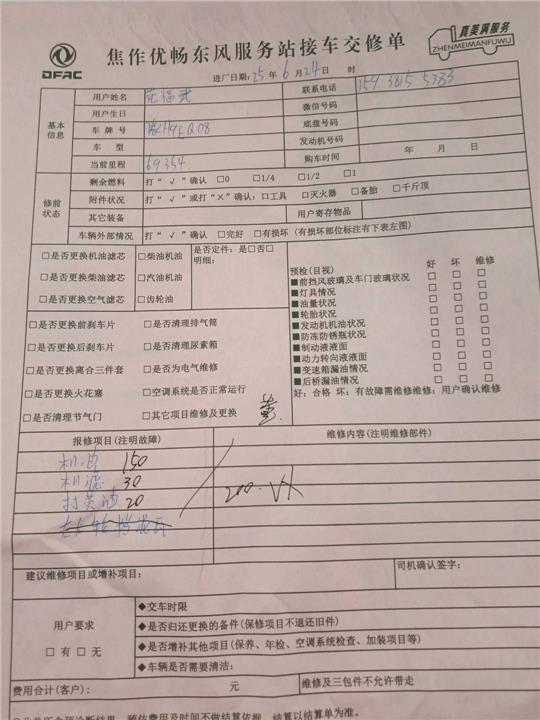 DFAC
焦作优畅东风服务站接车交修单
真美满服务
ZHENMEIMANFUWU
进厂日期:25年6月24日 时
基本信息
用户姓名
联系电话 159 3815 5383
用户生日
微信号码
车牌号
底盘号码
车型
发动机号码
当前里程 69354
购车时间 年 月 日
修前状态
剩余燃料 打“√”确认 □0 □1/4 □1/2 □1
附件状况 打“√”或打“×”确认:□工具 □灭火器 □备胎 □千斤顶
其它装备 用户寄存物品
车辆外部情况 打“√”确认 □完好 □有损坏(有损坏部位标注有下表左图)
□是否更换机油滤芯 □柴油机油
□是否更换柴油滤芯 □汽油机油
□是否更换空气滤芯 □齿轮油
是否定件:是□否□
明细:
□是否更换前刹车片 □是否清理排气筒
□是否更换后刹车片 □是否清理尿素箱
□是否更换离合三件套 □是否为电气维修
□是否更换火花塞 □空调系统是否正常运行
□是否清理节气门 □其它项目维修及更换
预检(目视) 好 坏 维修
■前挡风玻璃及车门玻璃状况 □ □ □
■灯具情况 □ □ □
■油量状况 □ □ □
■轮胎状况 □ □ □
■发动机机油状况 □ □ □
■防冻防锈瓶状况 □ □ □
■制动液液面 □ □ □
■动力转向液液面 □ □ □
■变速箱漏油情况 □ □ □
■后桥漏油情况 □ □ □
好:合格 坏:有故障需维修维修:用户确认维修
报修项目(注明故障) 维修内容(注明维修部件)
机油 150
机滤 30
打黄油 20
200.
建议维修项目或增补项目:
司机确认签字:
用户要求
□有 □无
◆交车时限
◆是否归还更换的备件(保修项目不退还旧件)
◆是否增补其他项目(保养、年检、空调系统检查、加装项目等)
◆车辆是否需要清洁:
费用合计(客户): 元
维修及三包件不允许带走
预估费用及时间不做结算依据,结算以结算单为准。